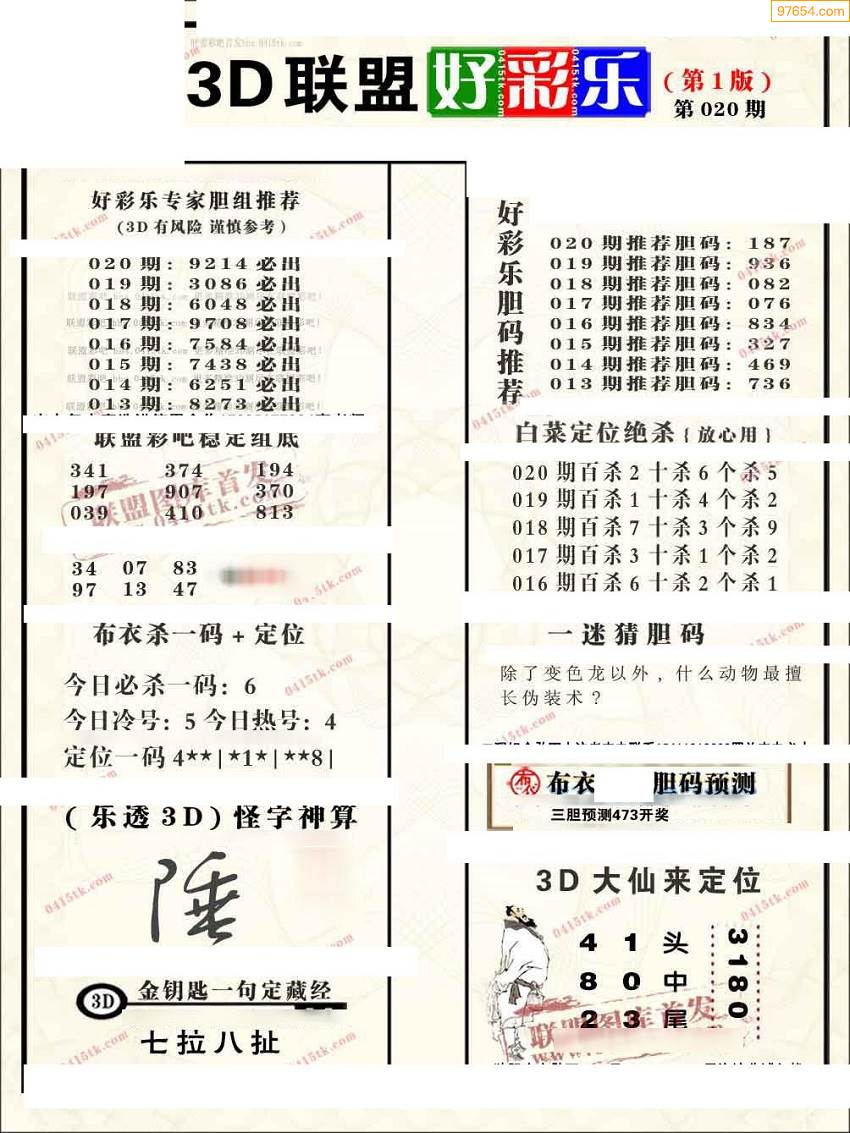 97654.com
3D联盟好彩乐(第1版)
第020期
好彩乐专家胆组推荐
(3D有风险 谨慎参考)
020期: 9214必出
019期: 3086必出
018期: 6048必出
017期: 9708必出
016期: 7584必出
015期: 7438必出
014期: 6251必出
013期: 8273必出
联盟彩吧稳定组底
341 374 194
197 907 370
039 410 813
34 07 83
97 13 47
布衣杀一码+定位
今日必杀一码: 6
今日冷号: 5 今日热号: 4
定位一码4**|*1*|**8|
(乐透3D)怪字神算
陲
3D 金钥匙一句定藏经
七拉八扯
好彩乐胆码推荐
020期推荐胆码: 187
019期推荐胆码: 936
018期推荐胆码: 082
017期推荐胆码: 076
016期推荐胆码: 834
015期推荐胆码: 327
014期推荐胆码: 469
013期推荐胆码: 736
白菜定位绝杀{放心用}
020期百杀2十杀6个杀5
019期百杀1十杀4个杀2
018期百杀7十杀3个杀9
017期百杀3十杀1个杀2
016期百杀6十杀2个杀1
一迷猜胆码
除了变色龙以外，什么动物最擅
长伪装术？
布衣 胆码预测
三胆预测473开奖
3D大仙来定位
4 1 头
8 0 中
2 3 尾
3180
联盟图库首发
0415tk.com